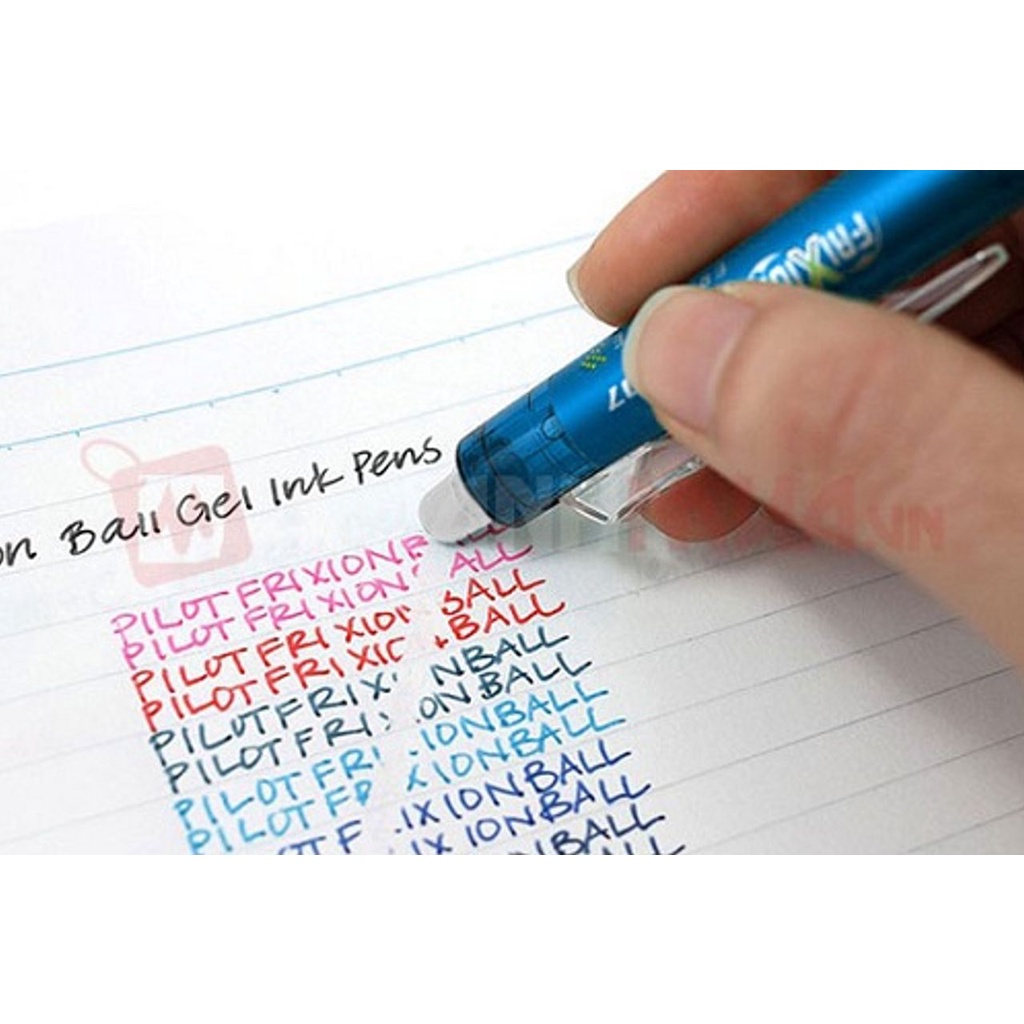 FRIXION
07
on Ball Gel Ink Pens
PILOT FRIXION B
PILOT FRIXION ALL
PILOT FRIXION BALL
PILOT FRIXIO BALL
PILOT FRIX NBALL
PILOT FRI ON BALL
PILOT FRI IONBALL
PILOT FR XIONBALL
OT F IXIONBALL
IXIONBALL
NBALL